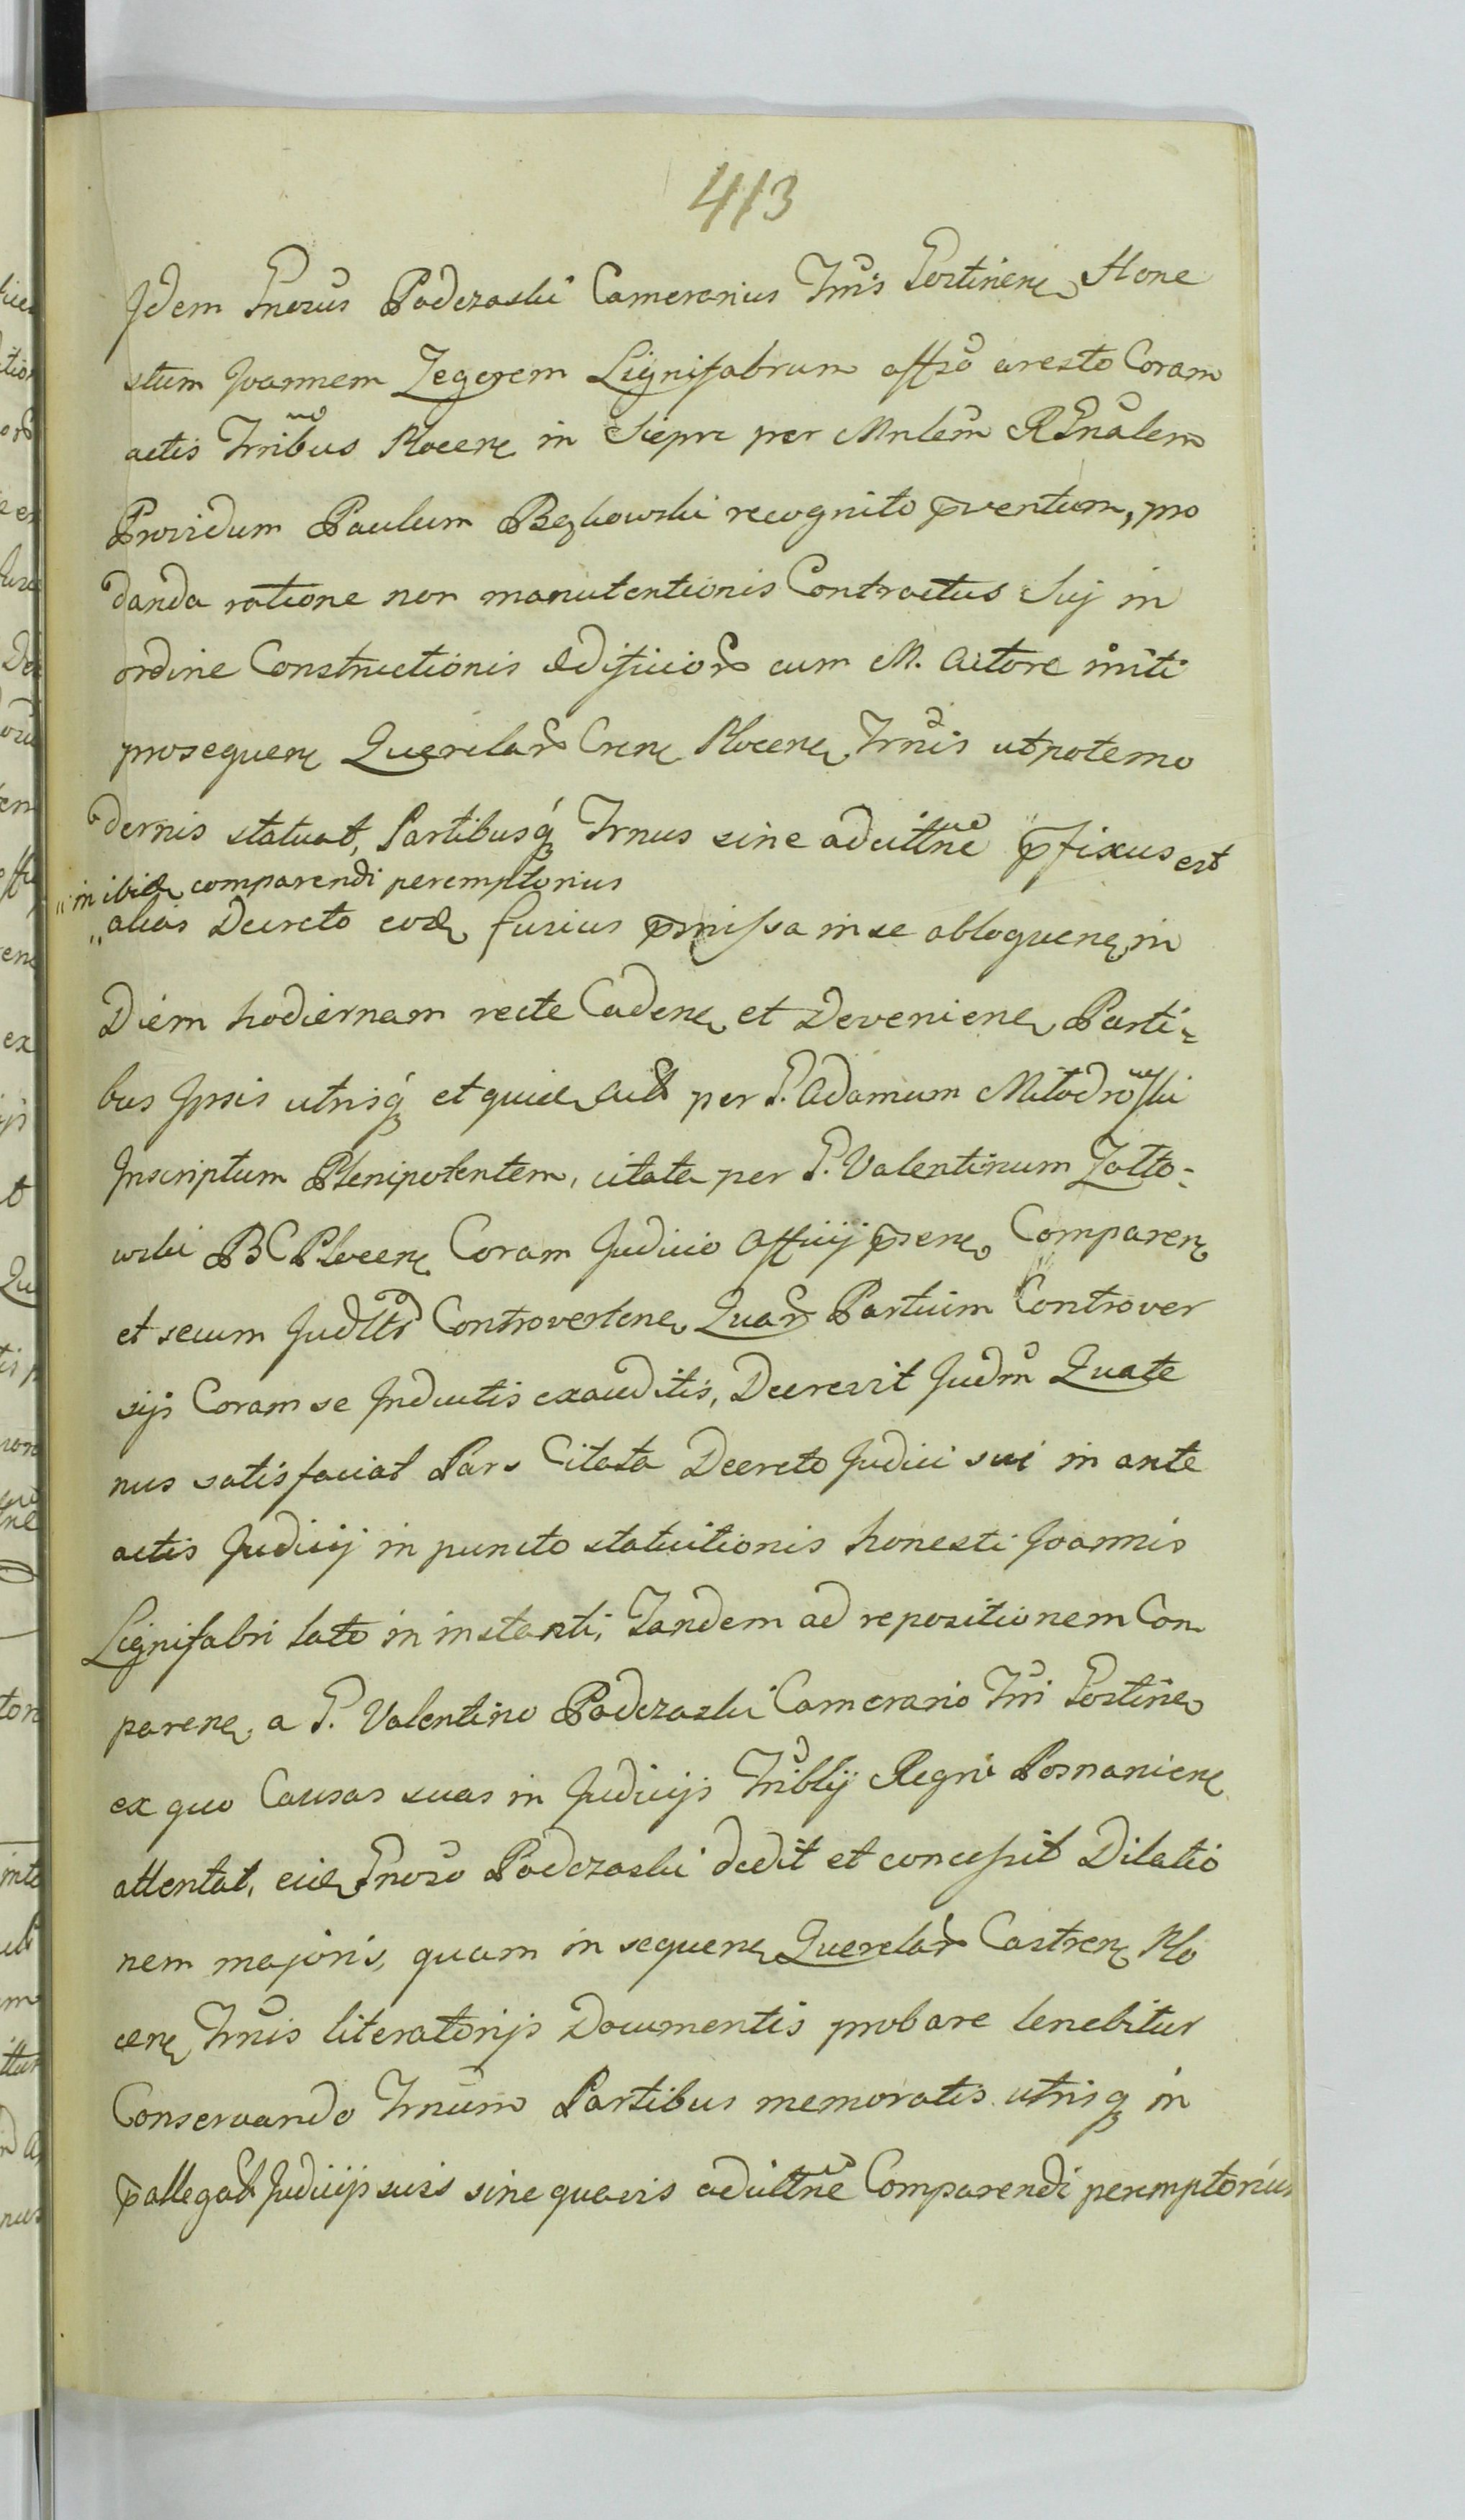 413
Idem Gnosus Podczaski Camerarius Trris Gostinen Hone
stum Joannem Zegerem Lignifabrum offso aresto Coram
actis Trribus Plocen in Sieprc per Mnlem RGnalem
Providum Paulum Bęzkowski recognito pventum, pro
danda ratione non manutentionis Contractus Sui in
ordine Constructionis ædificior cum M. Actore initi
prosequen Querelar Cren Plocen Trnis utpotemo
dernis statuat, Partibusq Trnus sine aducttne pfixus est
"in ibid comparendi peremptorius
"alias Decreto eod fusius pmissa in se abloquen, in
Diem hodiernam recte Caden et Devenien Parti-
bus Ipsis utrisq et quid Act per G. Adamum Miłodrowski
Inscriptum Plenipotentem, citata per G. Valentinum Zołto-
wski BC Plocen Coram Judicio Officij psen Comparen
et secum Judltr Controverten Quar Partium Controver
sijs Coram se Inductis exauditis, Decrevit Judm Quate
nus satisfaciat Pars Citata Decreto Judici sui in ante
actis Judicij in puncto statuitionis honesti Joannis
Lignifabri lato in instanti, Tandem ad repositionem Com
paren a G. Valentino Podczaski Camerario Trri Gostine
ex quo Causas suas in Judicijs Triblij Regni Posnanien
attentat, eid Gnoso Podczaski dedit et concessit Dilatio
nem majoris, quam in sequen Querelar Castren Plo
cen Trnis literatorijs Documentis probare tenebitur
Conservando Trnum Partibus memoratis utrisq in
pallegat Judicijs suis sine quavis aducttne Comparendi peremptorium